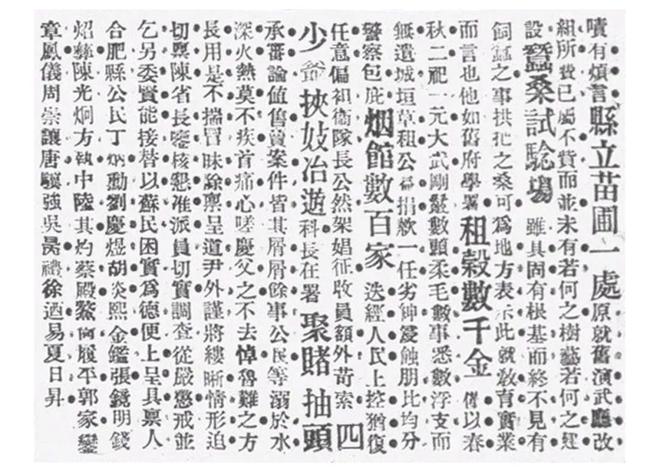 嘖有煩言縣立苗圃一處原就舊演武廳改
組所費已屬不貲而並未有若何之樹藝若何之建
設蠶桑試驗塲雖具固有根基而終不見有
飼蠶之事拱把之桑可爲地方表示此就敎育實業
而言也他如舊府學署租穀數千金備以春
秋二祀一元大武剛鬣數頭柔毛數事悉數浮支而
無遺城垣草租公益捐欵一任劣紳浸蝕朋比均分
警察包庇烟館數百家迭經人民上控猶復
任意偏袒衛隊長公然架娼征收員額外苛索四
少爺挾妓冶遊科長在署聚賭抽頭
承審論値售賣案件皆其屑屑餘事公民等溺於水
深火熱莫不疾首痛心嗟慶父之不去悼魯難之方
長用是不揣冒昧除禀呈道尹外謹將縷晰情形迫
切禀陳省長鑒核懇准派員切實調查從嚴懲戒並
乞另委賢能接替以蘇民困實爲德便上呈具禀人
合肥縣公民丁炳勳劉慶煜胡炎熙金鑑張錫明錢
炤彝陳光炯方執中陸其灼蔡殿鰲 履平郭家鑾
章鳳儀周崇讓唐驥強吳 禮徐迺易夏日昇